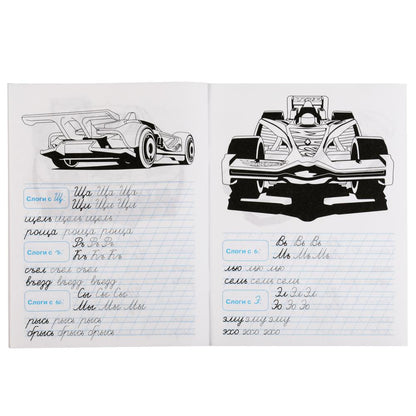 Слоги с Щ.
Ща Ща Ща
Щи Щи Щи
щель щель щель
роща роща роща
Слоги с ъ.
Ръ Ръ Ръ
Къ Къ Къ
съел съел съел
въезд въезд въезд
Слоги с ы.
Сы Сы Сы
Мы Мы Мы
рысь рысь рысь
брысь брысь брысь
Слоги с ь.
Вь Вь Вь
Мь Мь Мь
лью лью лью
семь семь семь
Слоги с Э.
Эл Эл Эл
Эо Эо Эо
эму эму эму
эхо эхо эхо